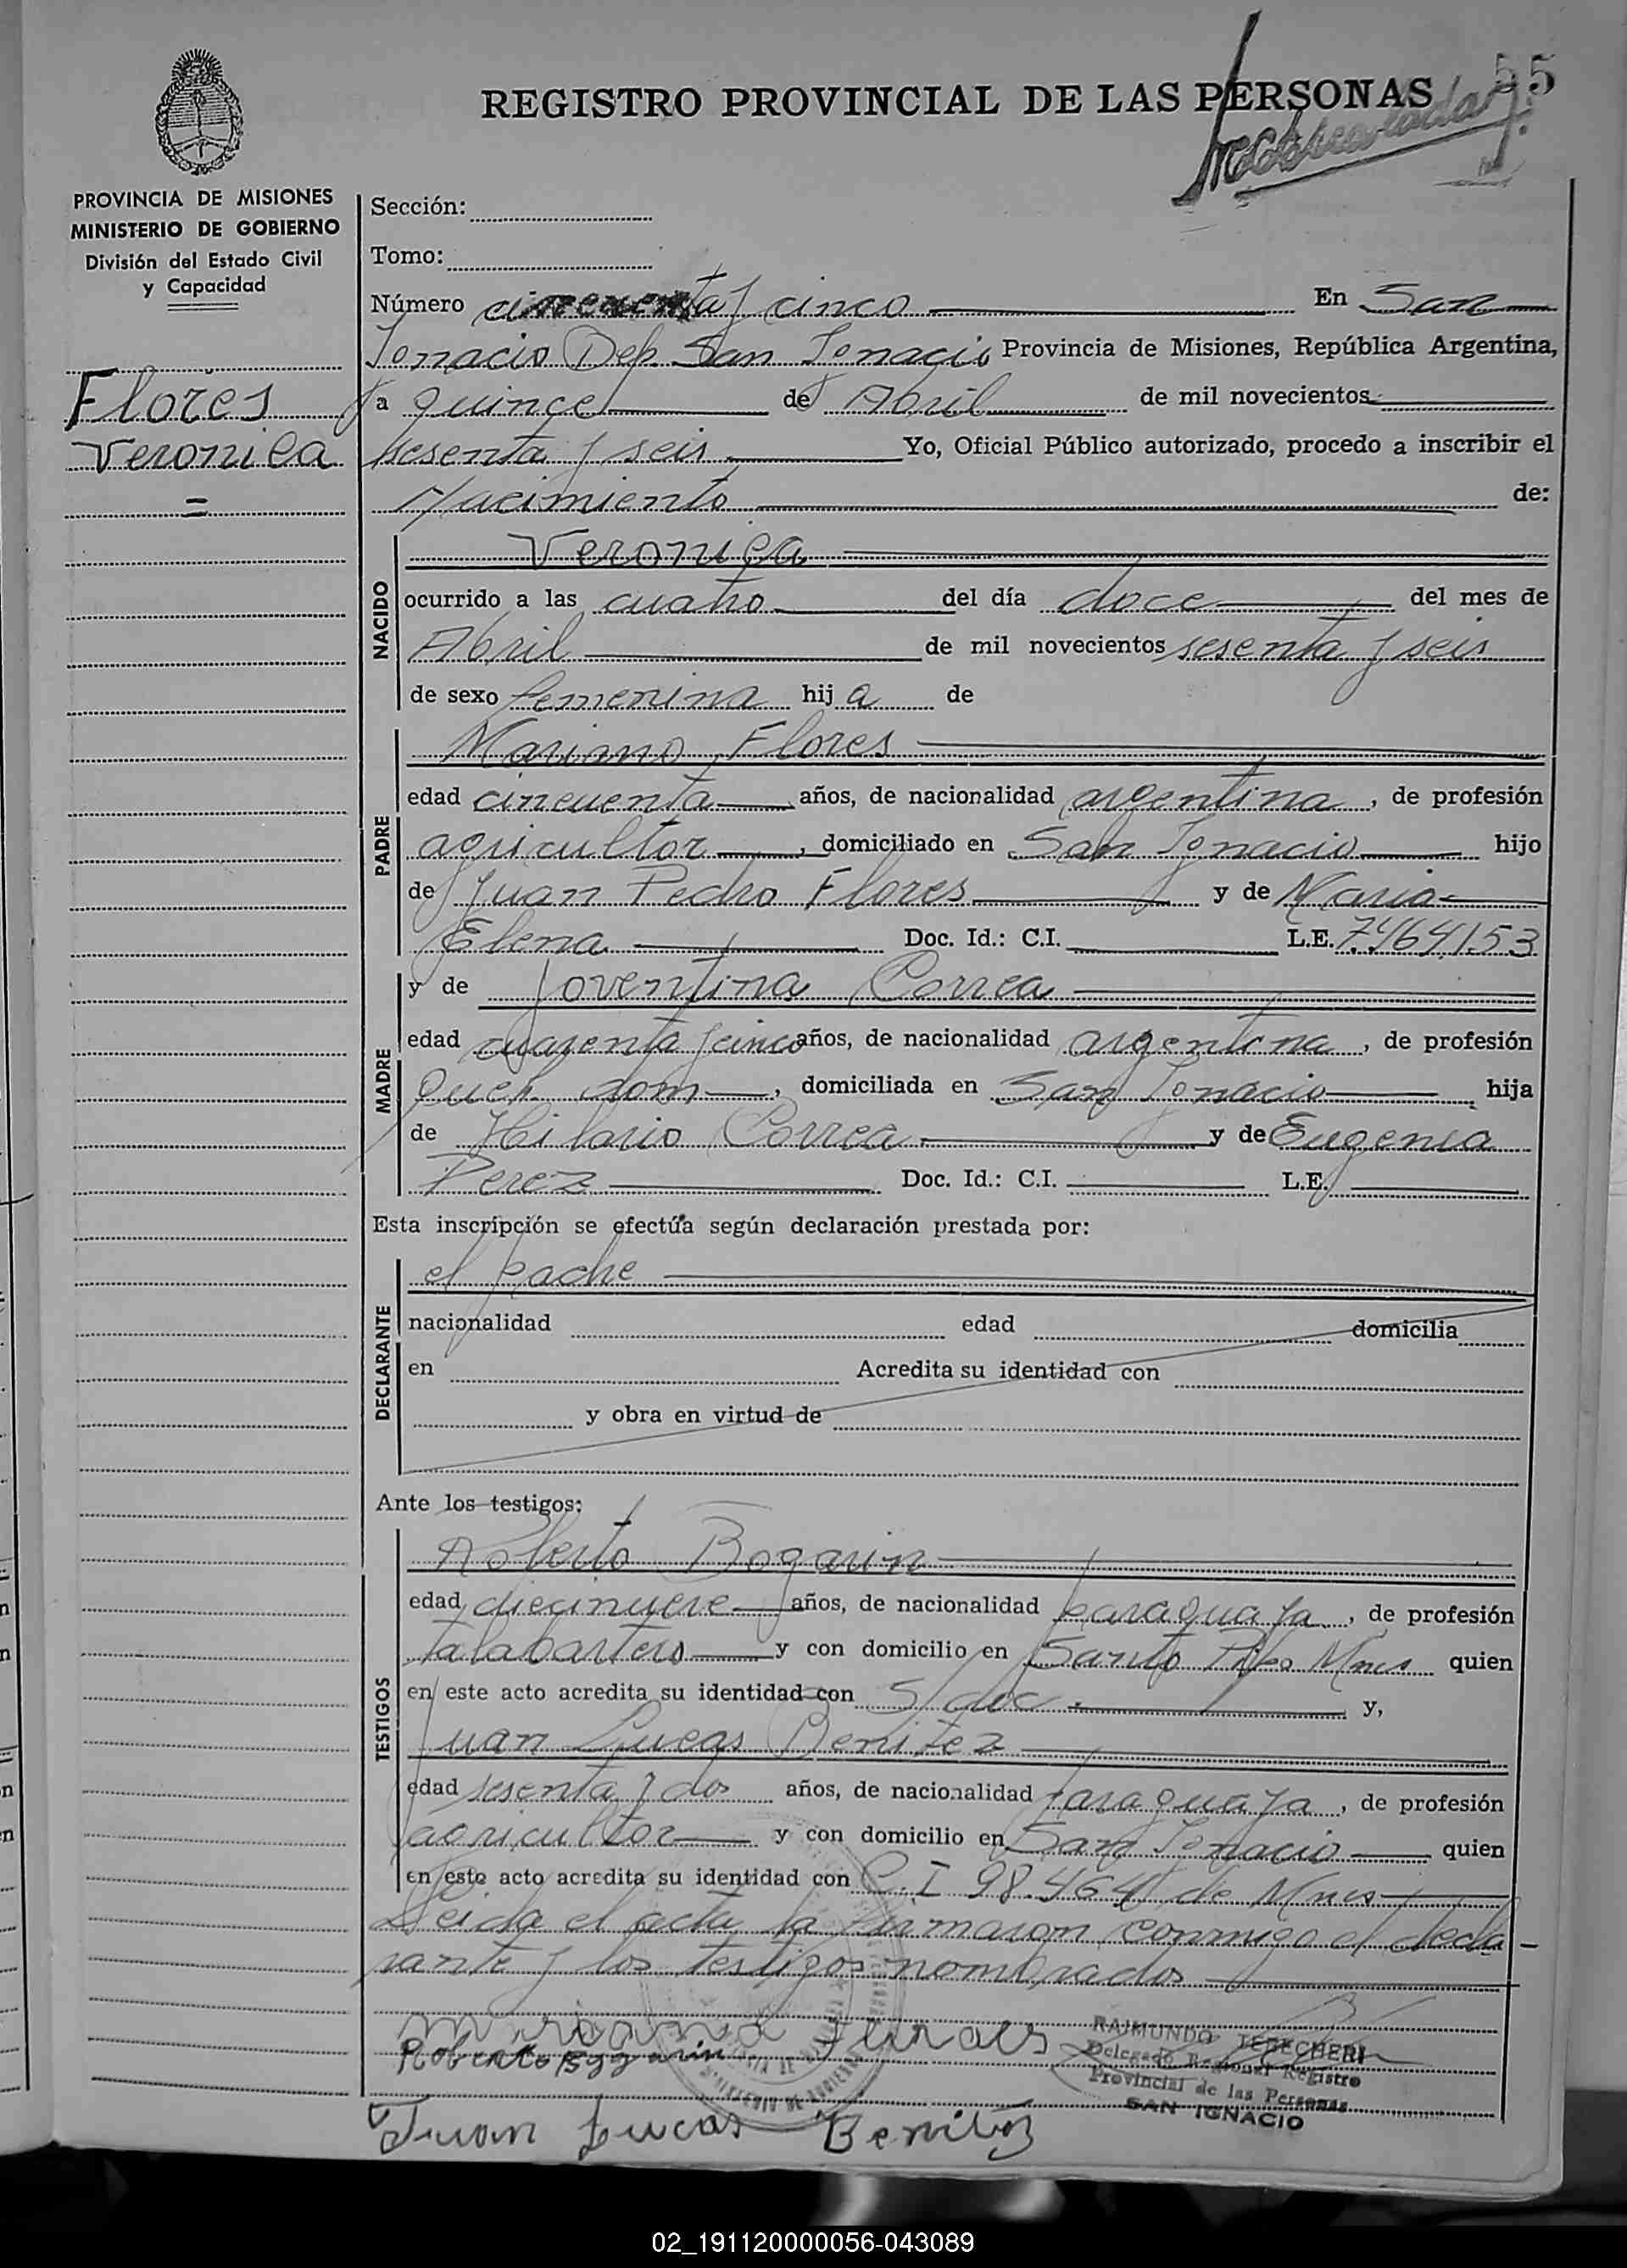 55
REGISTRO PROVINCIAL DE LAS PERSONAS
PROVINCIA DE MISIONES
MINISTERIO DE GOBIERNO
División del Estado Civil
y Capacidad
Flores
Veronica
Sección:
Tomo:
Número cincuenta y cinco En San
Ignacio Dep. San Ignacio Provincia de Misiones, República Argentina,
a quince de Abril de mil novecientos
sesenta y seis Yo, Oficial Público autorizado, procedo a inscribir el
Nacimiento de:
NACIDO
Veronica
ocurrido a las cuatro del día doce del mes de
Abril de mil novecientos sesenta y seis
de sexo femenina hija de
PADRE
Mariano Flores
edad cincuenta años, de nacionalidad argentina, de profesión
agricultor, domiciliado en San Ignacio hijo
de Juan Pedro Flores y de Maria
Elena Doc. Id.: C.I. L.E.
MADRE
y de Joventina Correa
edad cuarenta y cinco años, de nacionalidad argentina, de profesión
queh. dom, domiciliada en San Ignacio hija
de Hilario Correa y de Eugenia
Perez Doc. Id.: C.I. L.E.
Esta inscripción se efectúa según declaración prestada por:
DECLARANTE
el padre
nacionalidad edad domicilia
en Acredita su identidad con
y obra en virtud de
Ante los testigos:
TESTIGOS
Roberto Bogarin
edad diecinueve años, de nacionalidad paraguaya, de profesión
talabartero y con domicilio en Santo Pipo Mnes quien
en este acto acredita su identidad con S/doc. y,
Juan Lucas Benitez
edad sesenta y dos años, de nacionalidad paraguaya, de profesión
agricultor y con domicilio en San Ignacio quien
en este acto acredita su identidad con C.I 98.464 de Mnes
Leida el acta la firmaron conmigo el decla
rante y los testigos nombrados
Roberto
RAIMUNDO TEBECHERI
Delegado Regional Registro
Provincial de las Personas
SAN IGNACIO
Juan Lucas Benitez
02_191120000056-043089